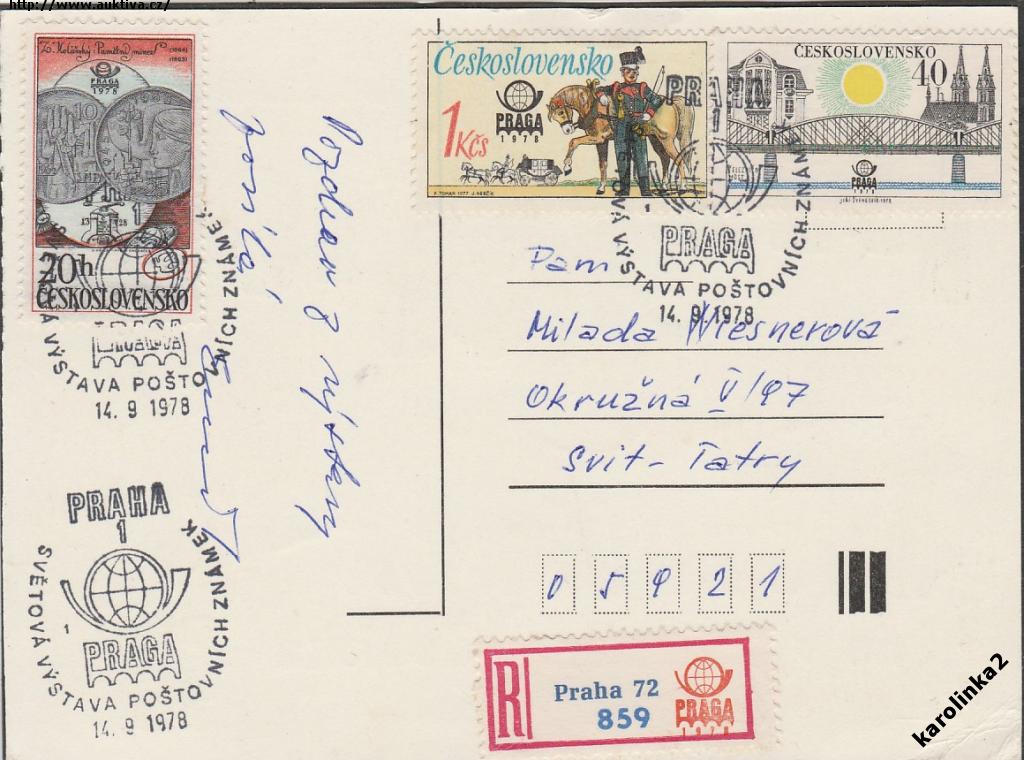 http://www.auktiva.cz/
Zo. Kolářský Pamětní mince
PRAGA
1978
20h
ČESKOSLOVENSKO
Československo
1Kčs
PRAGA
1978
ČESKOSLOVENSKO
40
PRAGA
1978
PRAHA
1
PRAGA
SVĚTOVÁ VÝSTAVA POŠTOVNÍCH ZNÁMEK
14. 9 1978
SVĚTOVÁ VÝSTAVA POŠTOVNÍCH ZNÁMEK
14. 9 1978
PRAHA
1
PRAGA
SVĚTOVÁ VÝSTAVA POŠTOVNÍCH ZNÁMEK
14. 9 1978
Pozdrav z výstavy
posílá
Paní
Milada Wiesnerová
Okružná V/97
Svit - Tatry
05921
R
Praha 72
859
PRAGA
1978
karolinka2